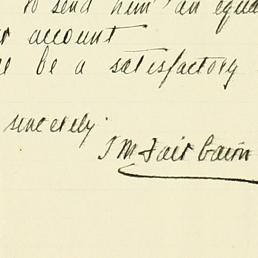 to send him an equa
r account
e be a satisfactory
sincerely
J M Fairbairn